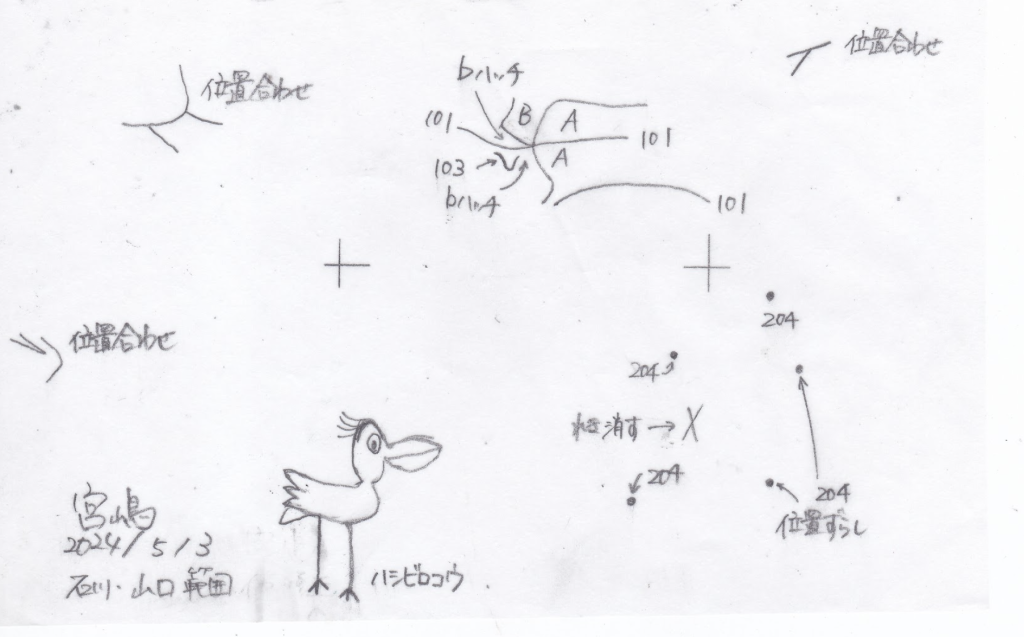 位置合わせ
bハッチ
位置合わせ
101
B
A
101
A
103
bハッチ
101
204
位置合わせ
204
消す→
204
204
位置ずらし
宮嶋
2024/5/3
石川・山口範囲
ハシビロコウ